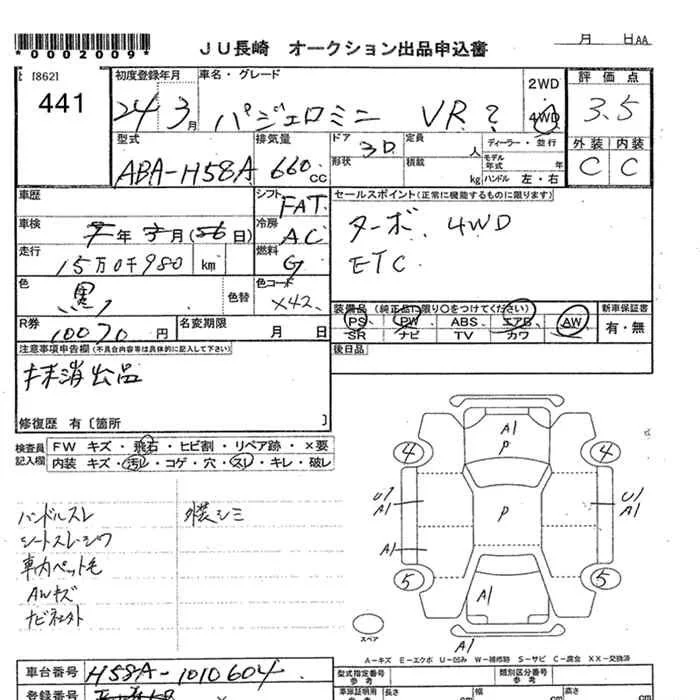 *0002009*
JU長崎 オークション出品申込書
月 日AA
[862]
441
初度登録年月
24 3月
車名・グレード
パジェロミニ VR?
2WD
4WD
評価点
3.5
外装 内装
C C
型式
ABA-H58A
排気量
660 CC
ドア
3D
形状
定員
人
積載
kg
ディーラー・並行
モデル年式 年
ハンドル 左・右
車歴
シフト
FAT
車検
年 月(56日)
冷房
AC
走行
15万0千980 km
燃料
G
色
黒
色替
色コード
X42
R券
10070 円
名変期限
月 日
セールスポイント(正常に機能するものに限ります)
ターボ. 4WD
ETC
装備品(純正品に限り○をつけてください)
PS PW ABS エアB AW
SR ナビ TV カワ
新車保証書
有・無
後日品
注意事項申告欄(不具合内容等は具体的に記入して下さい)
抹消出品
修復歴 有〔箇所 〕
検査員記入欄
FW キズ・飛石・ヒビ割・リペア跡・×要
内装 キズ・汚レ・コゲ・穴・スレ・キレ・破レ
ハンドルスレ
シートスレ・シワ
車内ペット毛
AWキズ
ナビ社外
外装シミ
A1
P
4
4
U1
A1
P
U1
A1
A1
5
5
A1
スペア
A1
A-キズ E-エクボ U-凹み W-補修跡 S-サビ C-腐食 XX-交換済
車台番号
H58A-1010604
登録番号
型式指定番号
参考
類別区分番号
参考
車庫証明用
長さ cm
幅 cm
高さ cm